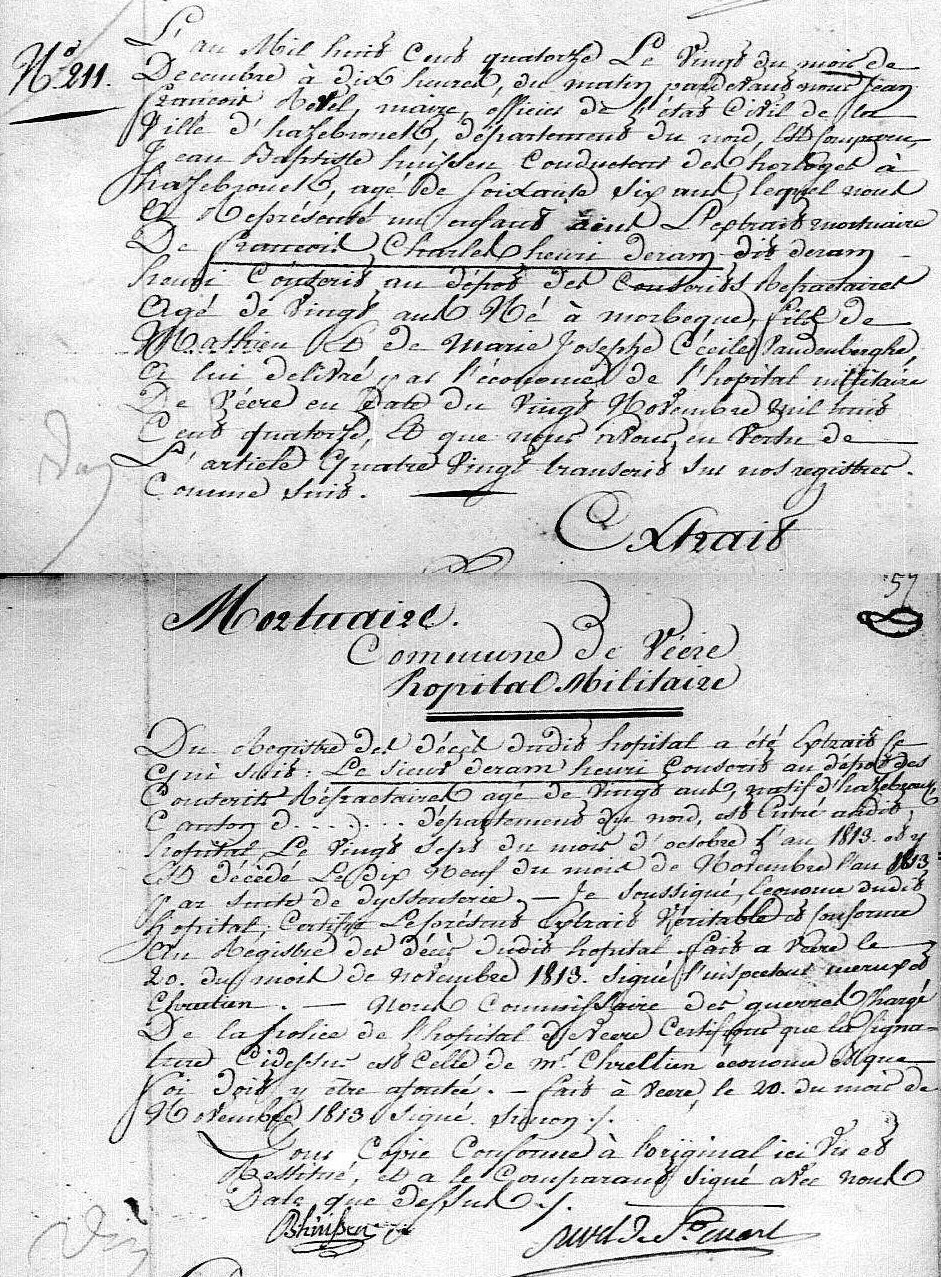 N° 211.
L'an Mil huit Cent quatorze Le Vingt du mois de
Decembre à dix heures, du matin pardevant nous Jean
francois Revel, maire, officier de l'état Civil de la
Ville d'hazebrouck, département du nord, Est Comparu,
Jean Baptiste huissen Conducteur des horloges à
hazebrouck, agé de Soixante Six ans, lequel nous
a Représenté un L'extrait mortuaire
De francois Charles henri deram dit deram
henri Conscrit au dépot des Conscrits Refractaires
Agé de Vingt ans Né à morbeque, fils de
Mathieu Et de Marie Josephe Cécile Vandenberghe,
a lui delivré par l'économe de l'hopital militaire
De Véere en Date du Vingt Novembre mil huit
Cent quatorze, Et que nous avons en Vertu de
L'article Quatre Vingt transcrit Sur nos registres.
Comme Suit.
Extrait
57
Mortuaire.
Commune de Véere
hopital Militaire
Du Registre des décès dudit hopital a été Extrait ce
qui suit: Le sieur deram henri Conscrit au dépot des
Conscrits Réfractaires agé de Vingt ans, natif d'hazebrouck,
Canton d........ département du nord, est Entré audit
hopital Le Vingt Sept du mois d'octobre l'an 1813. et y
Est décédé Le dix Neuf du mois de Novembre l'an 1813
par suite de dyssenterie, — Je soussigné, Econome dudit
hopital, Certifie Le présent Extrait Véritable et Conforme
Au Registre des Décès dudit hopital fait a Veere le
20. du mois de novembre 1813. signé l'inspecteur
Chretien. — Nous Commissaire des guerres Chargé
De la police de l'hopital de Veere Certifions que la Signa-
ture Cidessus est Celle de mr. Chrettien économe Et que
foi doit y être ajoutée. — fait à Veere le 20. du mois de
Novembre 1813 signé. Simon ./.
Pour Copie Conforme à l'original ici Vu et
Restitué, et a le Comparant signé avec nous
Date que dessus ./.
Bhuissen
revel